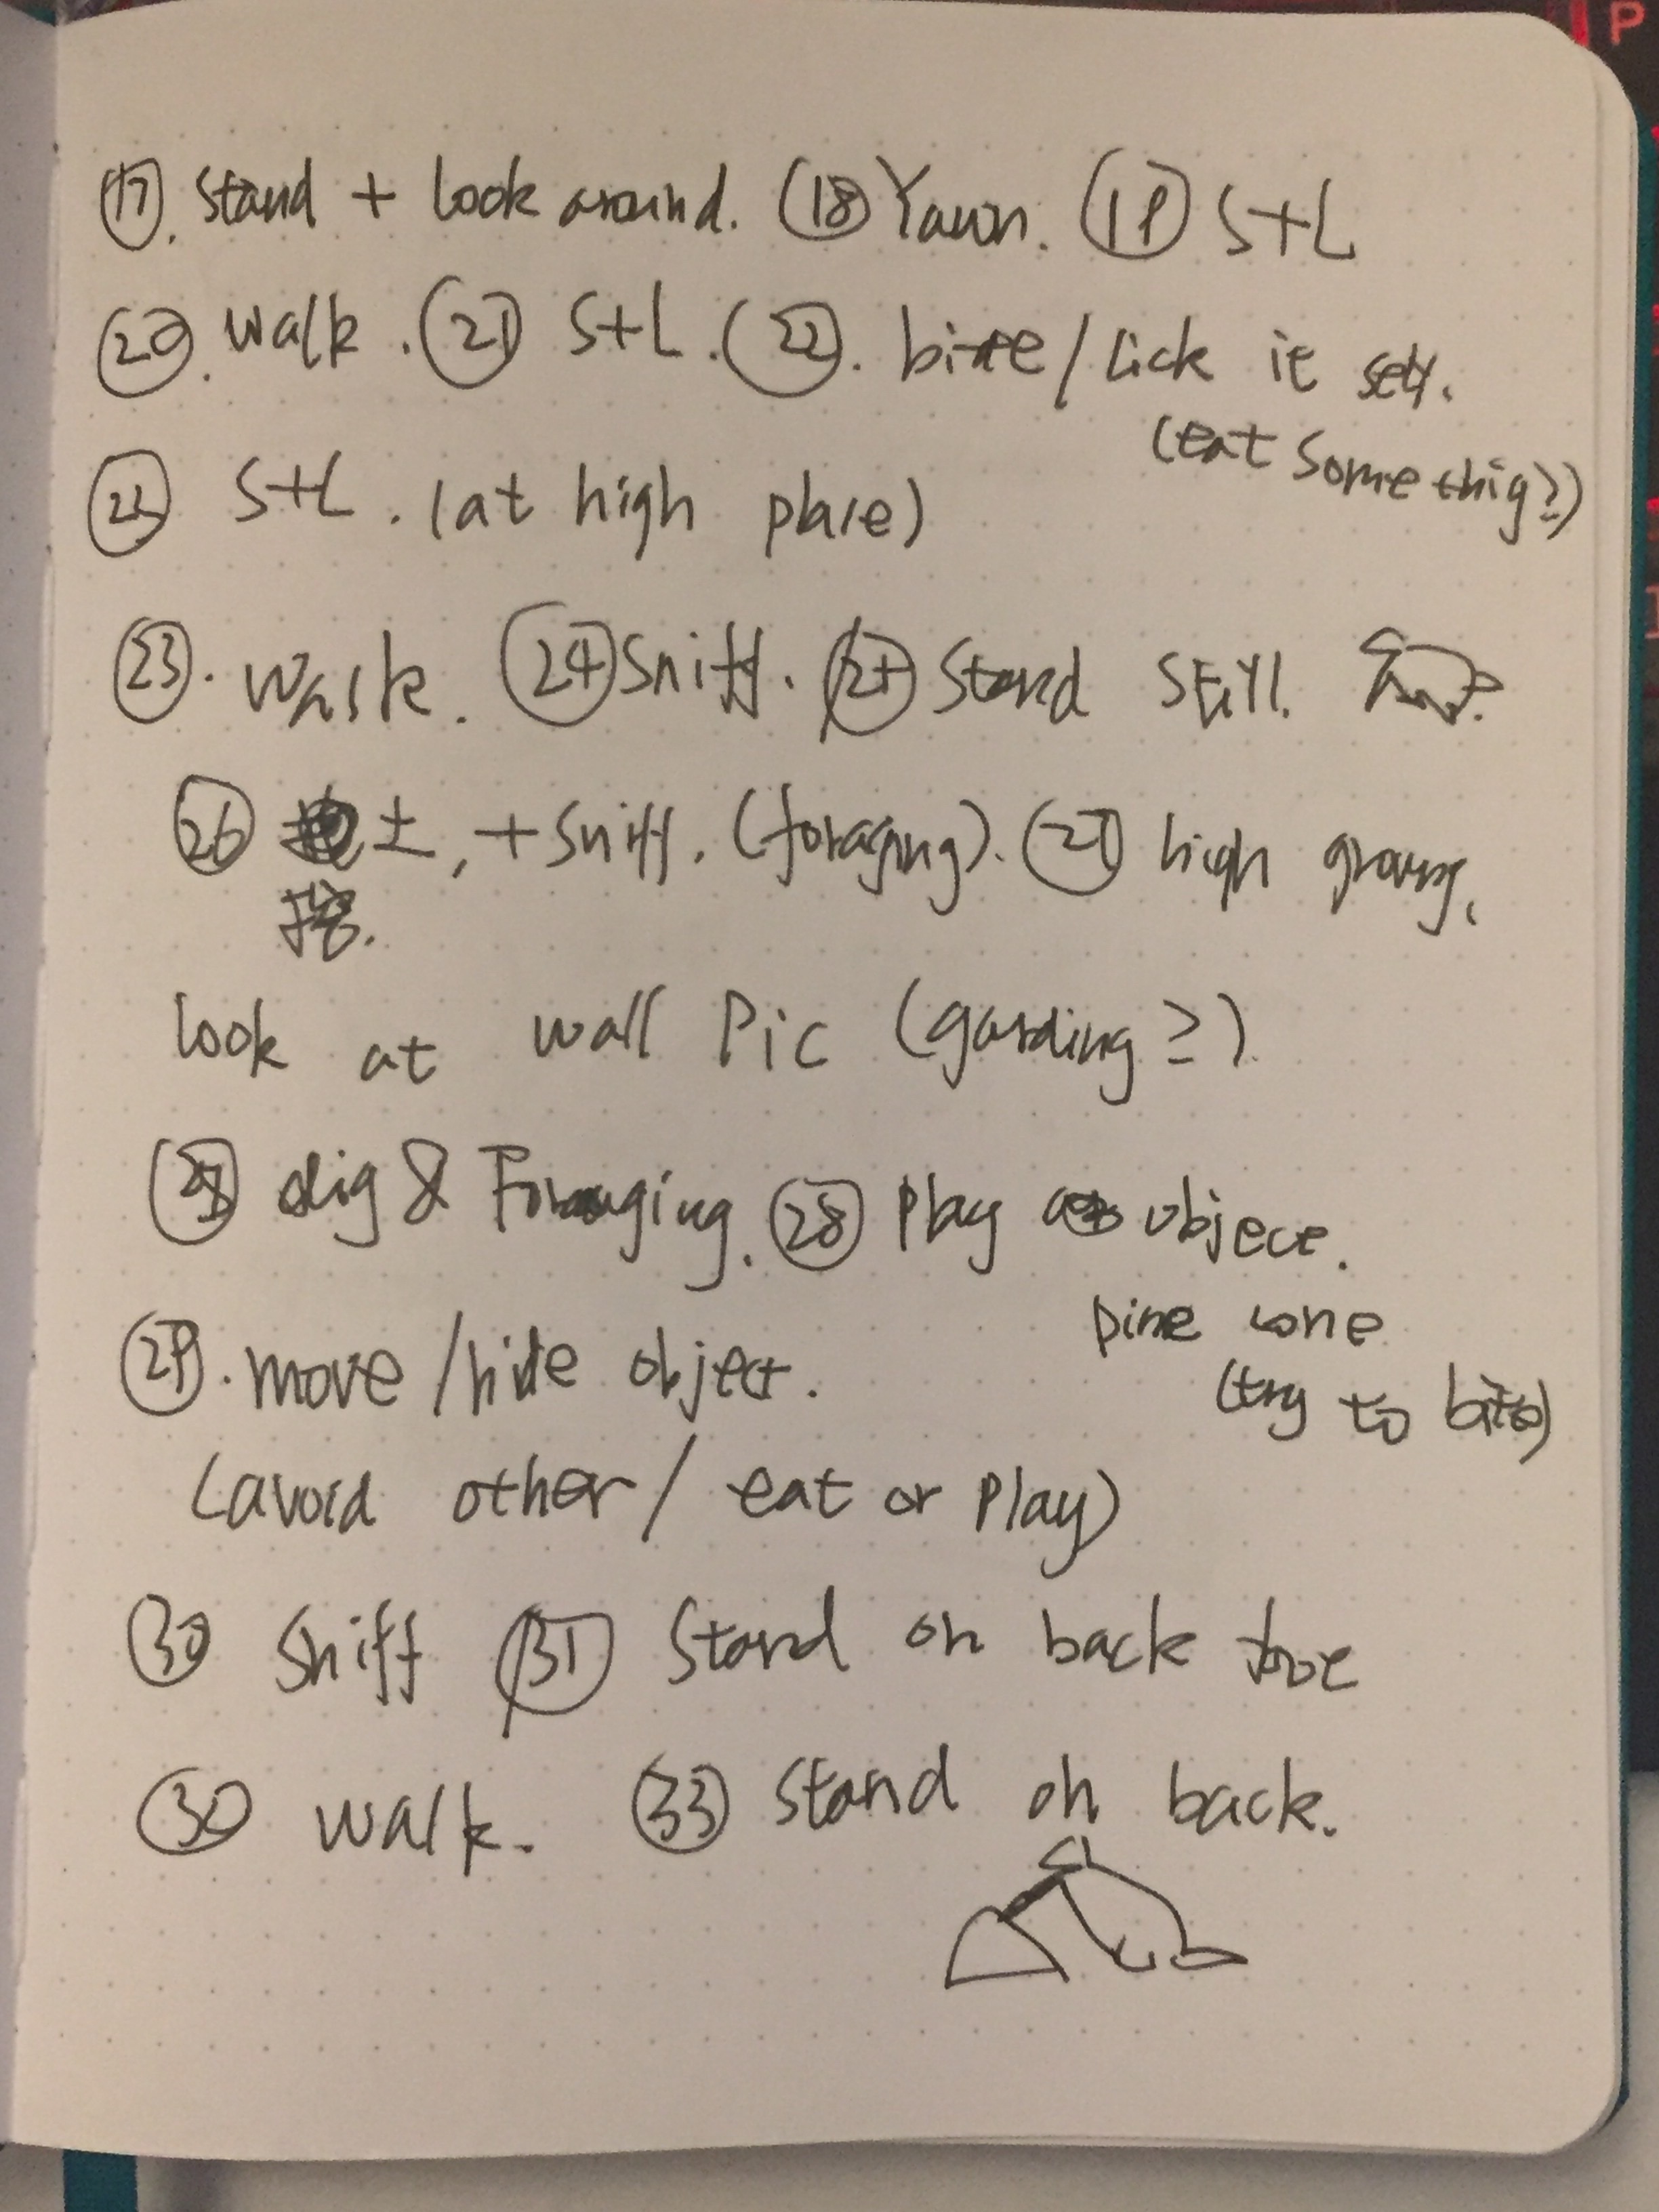 ⑰. Stand + look around. ⑱ Yawn. ⑲ S+L
⑳. walk. ㉑ S+L. ㉒. bite/lick it self.
(eat somethig?)
㉒ S+L. (at high place)
㉓. walk. ㉔ Sniff. ㉕ Stand still.
㉖ 土, + Sniff. (foraging). ㉗ high groung,
挖.
look at wall Pic (garding?)
dig & Foraging. ㉘ Play object.
pine cone
㉙. move/hide object.
(try to bite)
(avoid other/ eat or play)
㉚ Sniff ㉛ Stand on back
㉚ walk. ㉝ stand on back.
P